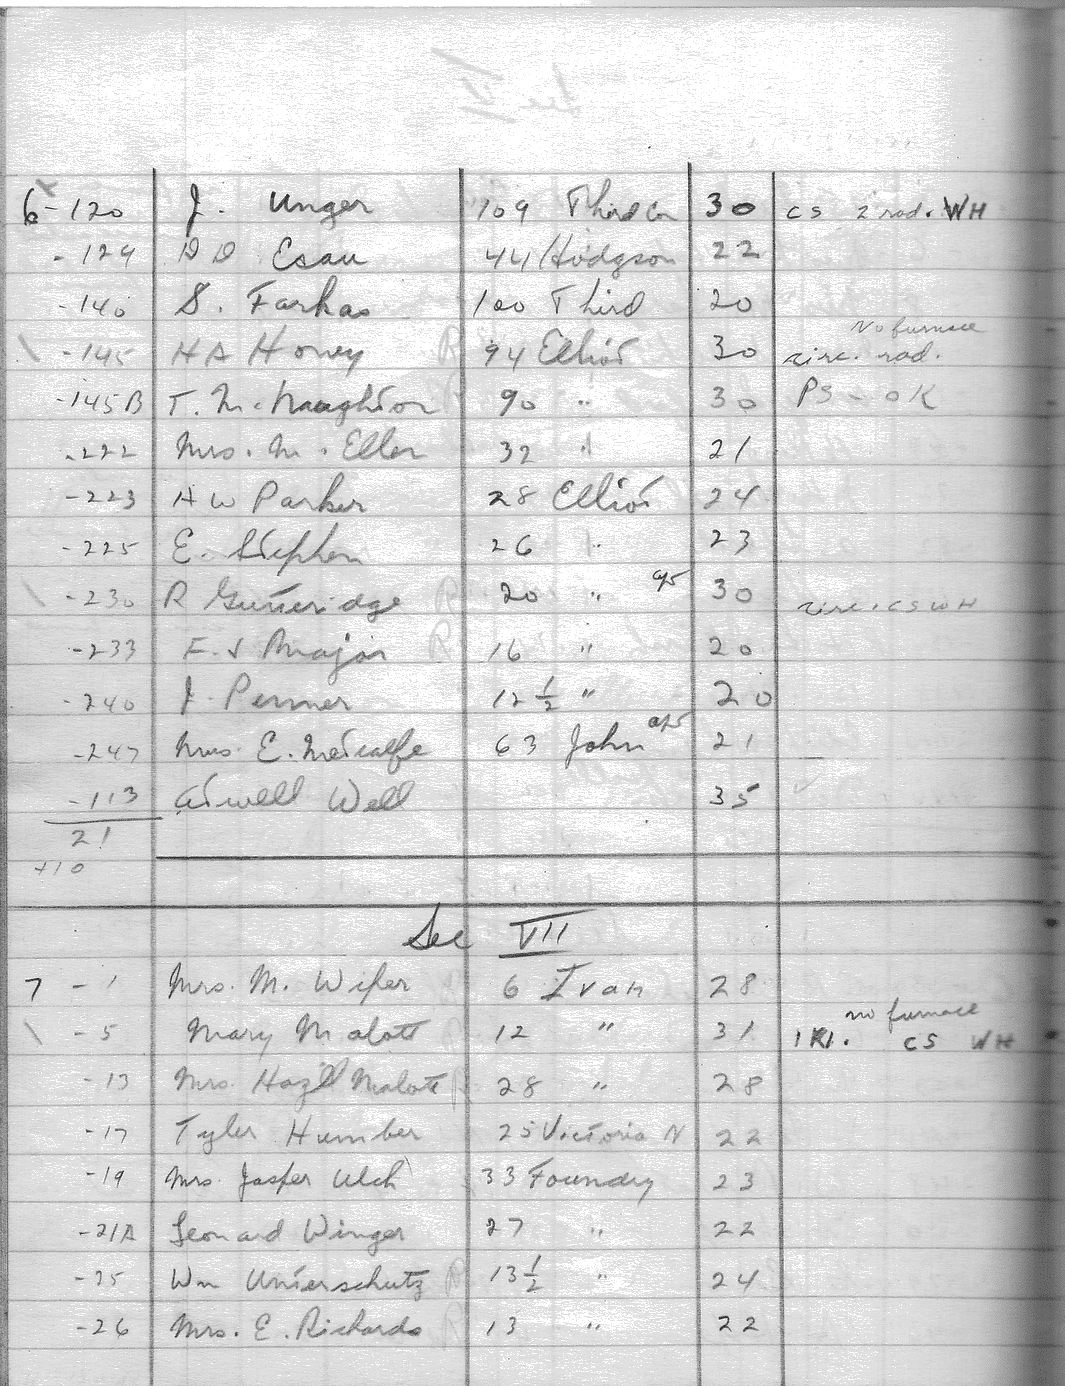 6 -120 J. Unger 109 Third Con 30 CS 2 rad. WH
-129 D D Esau 44 Hodgson 22
-140 S. Farkas 100 Third 20
No furnace
-145 H A Honey 94 Elliot 30 circ. rad.
-145B T. McNaughton 90 " 30 PS - OK
-222 Mrs. M. Eller 32 " 21
-223 H W Parker 28 Elliot 24
-225 E. Stephen 26 " 23
-230 R Gutteridge 20 " 30 circ. CS WH
-233 F. S Major 16 " 20
-240 J. Penner 12 1/2 " 20
-247 Mrs E. Metcalfe 63 John 21
-113 Atwell Well 35
21
+10
Sec VII
7 -1 Mrs. M. Wifer 6 Ivan 28
no furnace
-5 Mary Malott 12 " 31 CS WH
-13 Mrs. Hazel Malott 28 " 28
-17 Tyler Humber 25 Victoria N 22
-19 Mrs. Jasper Ulch 33 Foundry 23
-21A Leonard Winger 27 " 22
-25 Wm Unterschutz 13 1/2 " 24
-26 Mrs. E. Richards 13 " 22